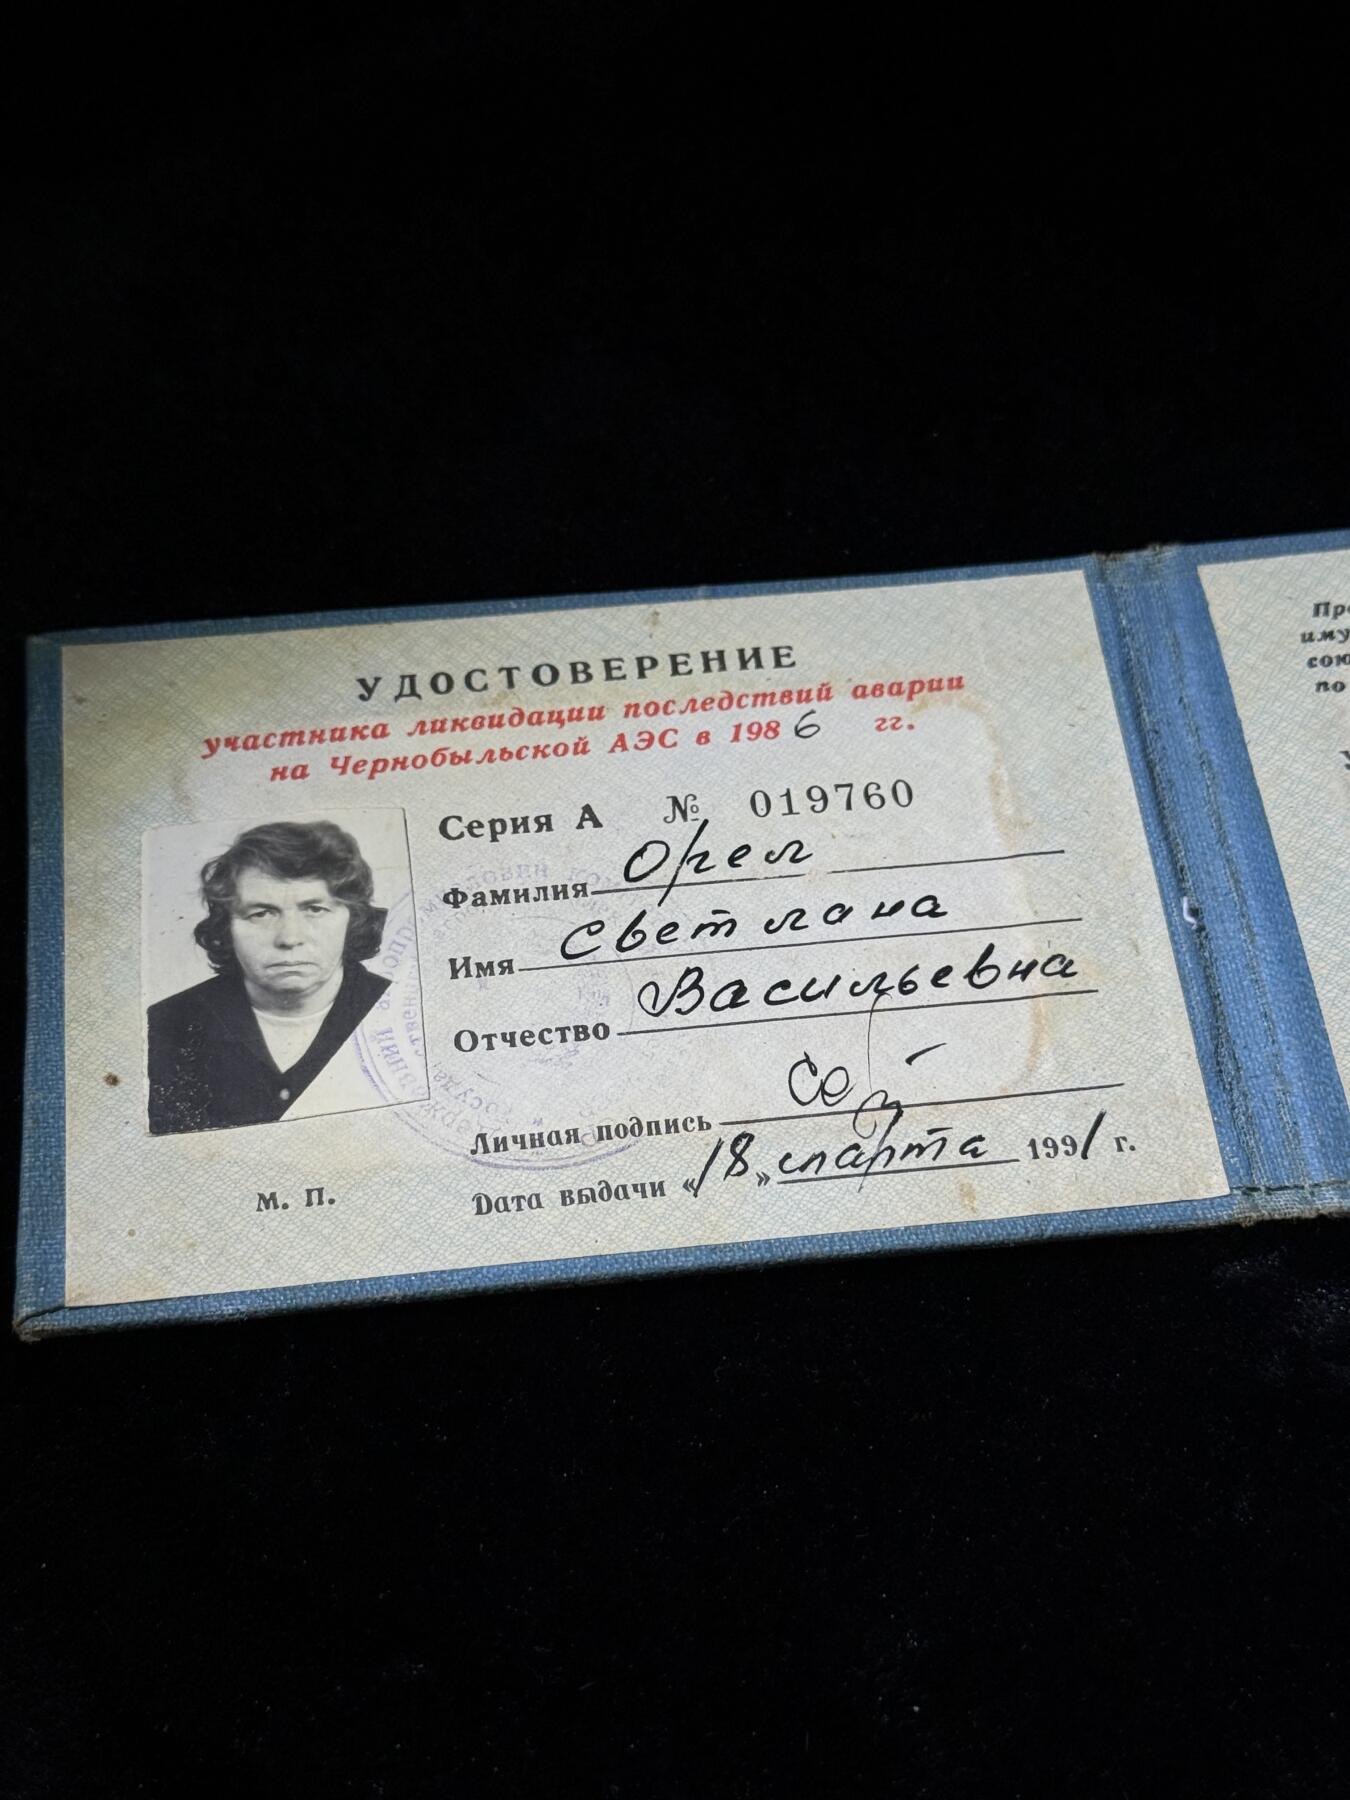 УДОСТОВЕРЕНИЕ
участника ликвидации последствий аварии
на Чернобыльской АЭС в 1986 гг.
Серия А № 019760
Фамилия Орел
Имя Светлана
Отчество Васильевна
Личная подпись
Дата выдачи «18» марта 1991 г.
М. П.
по